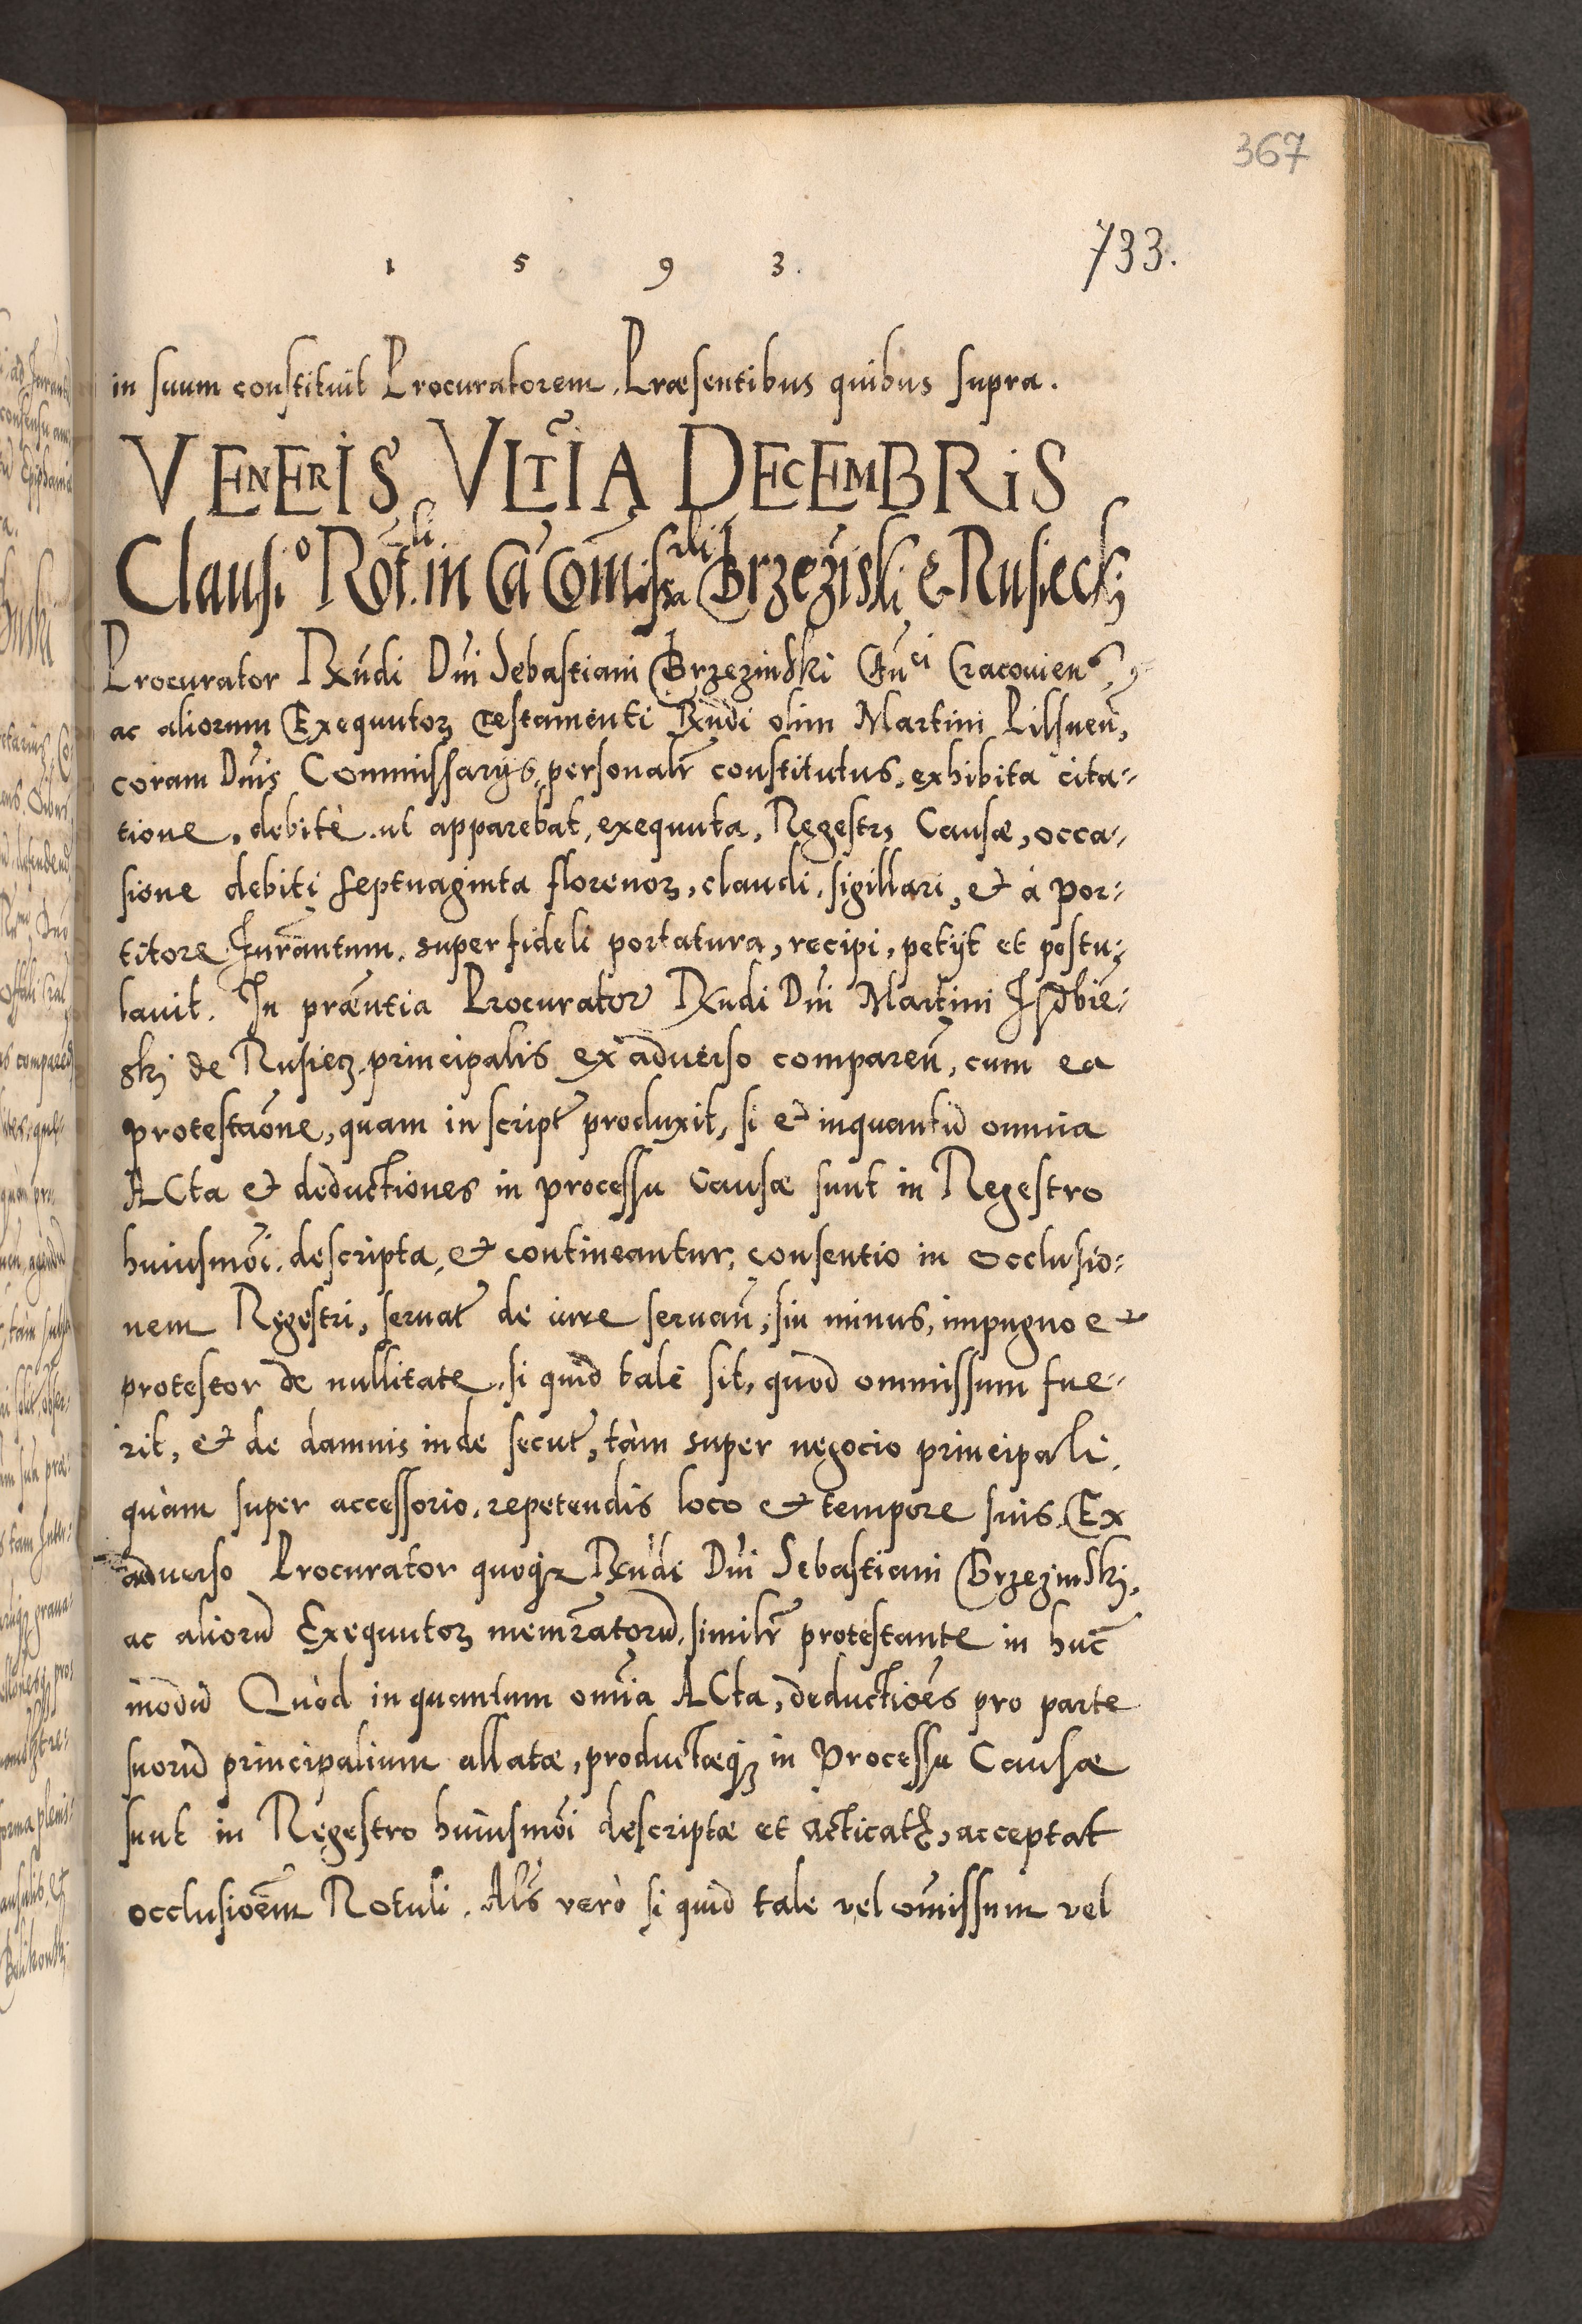 367
1 5 9 3.
733.
in suum constituit Procuratorem. Præsentibus quibus supra.
VENERIS VLTĨA DECEMBRIS
Clausio Rotli in Cã Comĩssrli Brzezĩski & Rusiecki
Procurator Rndi Dni Sebastiani Brzezinski Cunci Cracouien
ac aliorum Exequutorꝫ testamenti Rndi olim Martini Pilsnen̄,
coram Dnis Commissarijs, personalr̃ constitutus, exhibita cita-
tione, debitè ut apparebat, exequuta, Regestrũ Causæ, occa-
sione debiti septuaginta florenorꝫ, claudi, sigillari, et à por-
titore Iurantum. super fideli portatura, recipi, petijt et postu-
lauit. In præntia Procurator Rndi Dni Martini Izdbie-
ski de Rusiecꝫ principalis ex aduerso comparen̄, cum ea
protestaõne, quam in script̃ produxit, si et inquantũ omnia
ACta et deductiones in processu Causæ sunt in Regestro
huiusmõi descripta, et contineantur, consentio in occlusio-
nem Regestri, seruat̃ de iure seruan̄, sin minus, impugno et
protestor de nullitate, si quid tale sit, quod ommissum fue-
rit, et de damnis inde secut̃, tàm super negocio principali,
quàm super accessorio, repetendis loco et tempore suis. Ex
aduerso Procurator quoqꝫ Rndi Dni Sebastiani Brzezinski,
ac aliorũ Exequutorꝫ memratorũ, similr̃ protestante in hunc̃
modũ Quòd in quantum omĩa ACta, deductiões pro parte
suorũ principalium allatæ, productæqꝫ in Processu Causæ
sunt in Regestro huiusmõi descriptæ et acticatæ, acceptat
occlusiõem Rotuli. Als verò si quid tale vel omissum vel